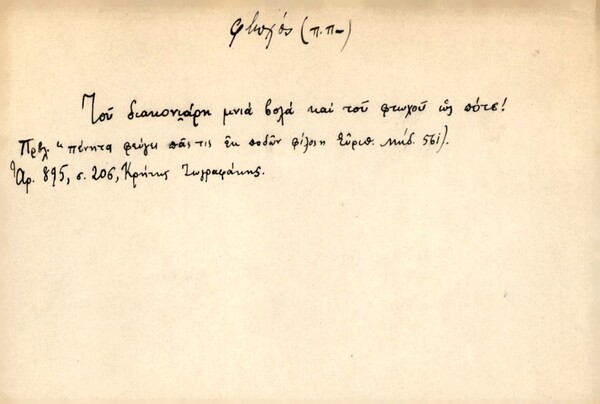 φτωχός (π.π-)
Τοῦ διακονιάρη μνιά βολά καί τοῦ φτωχοῦ ὡς πότε!
Πρβλ. "πένητα φεύγει πᾶς τις ἐκ ποδῶν φίλος„ Εὐριπ. Μήδ. 561).
Ἀρ. 895, σ. 206, Κρήτης Ζωγραφάκης.